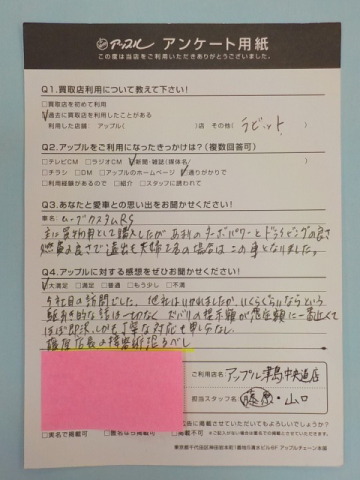 アップル アンケート用紙
この度は当店をご利用いただきありがとうございました。
Q1.買取店利用について教えて下さい!
□買取店を初めて利用
☑過去に買取店を利用したことがある
利用した店舗: アップル( )店 その他( ラビット )
Q2.アップルをご利用になったきっかけは?(複数回答可)
□テレビCM □ラジオCM ☑新聞・雑誌(媒体名 )
□チラシ □DM □アップルのホームページ ☑通りがかりで
□利用経験があるので □紹介 □スタッフに誘われて
Q3.あなたと愛車との思い出をお聞かせください!
車名: ムーヴカスタムRS
主に買物用として購入したがあまりのターボパワーとドライビングの良さ
燃費の良さで遠出も夫婦2名の場合はこの車となりました。
Q4.アップルに対する感想をぜひお聞かせください!
☑大満足 □満足 □普通 □もう少し □不満
5社目の訪問でした。他社はいけませんが、いくらぐらいならという
駆引き的な話は一切なく ズバリの提示額が希望額に一番近くて
ほぼ即決、しかも丁寧な対応も申し分なし
藤原店長の接客術 恐るべし
ご利用店名 アップル津島中央通店
担当スタッフ名 藤原・山口
広告に掲載させていただいてもよろしいでしょうか?
□実名で掲載可 □匿名なら掲載可 □掲載不可
東京都千代田区神田和泉町1番地
アップルチェーン本部